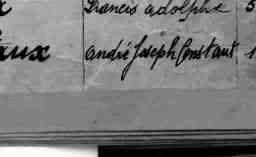 Francis adolphe 5
aux andré Joseph Constant 1